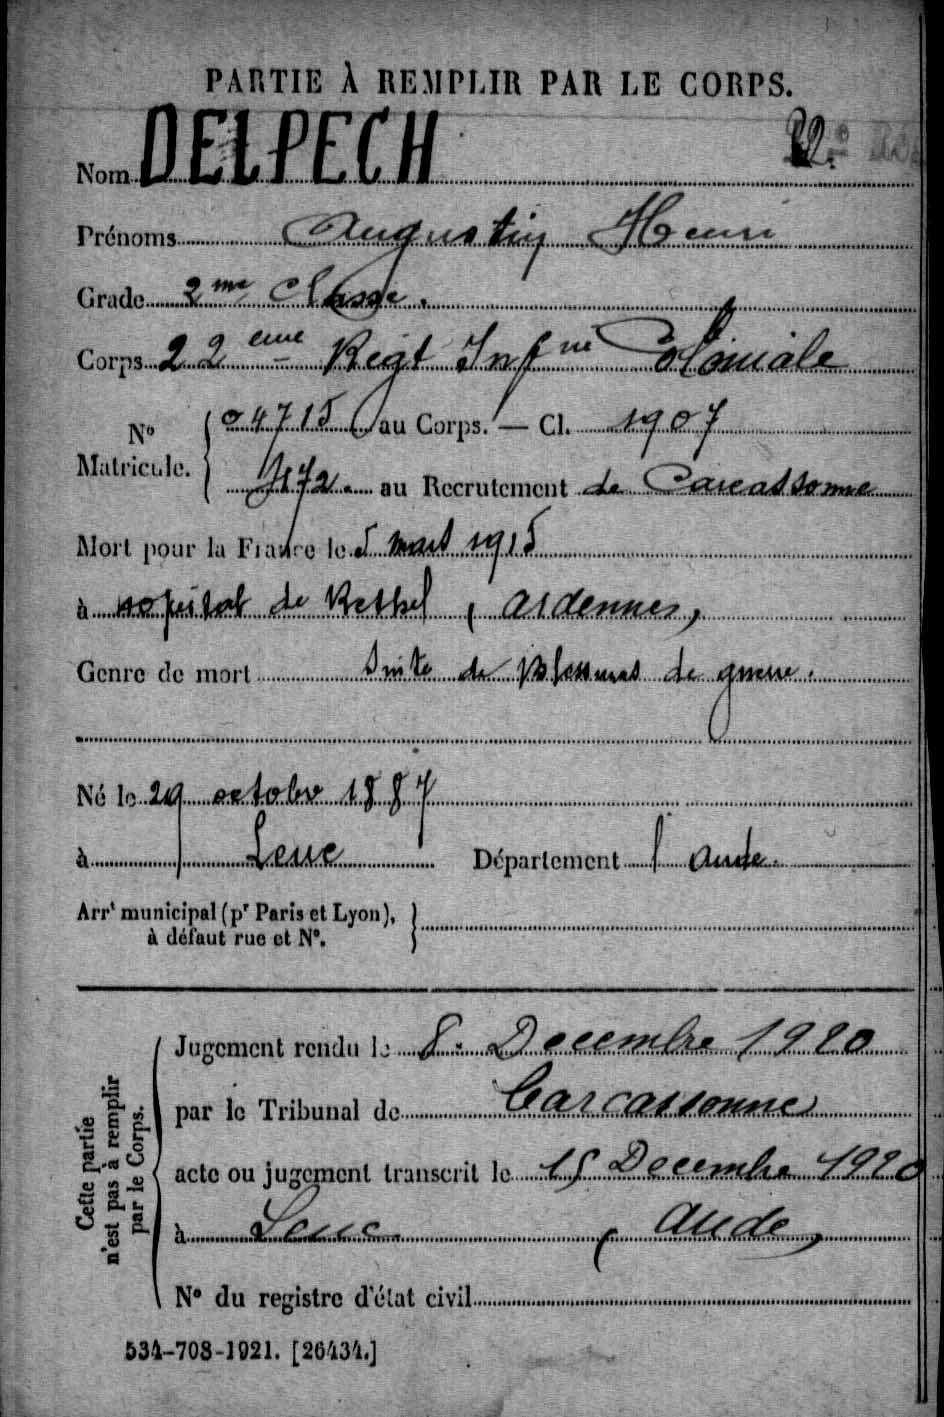 PARTIE À REMPLIR PAR LE CORPS.
22.
Nom DELPECH
Prénoms Augustin Henri
Grade 2me classe.
Corps 22eme Régt Infrie Coloniale
No Matricule. { 04715 au Corps. — Cl. 1907
1172. au Recrutement de Carcassonne
Mort pour la France le 5 mars 1915
à hopital de Rethel (Ardennes)
Genre de mort Suite de blessures de guerre.
Né le 29 octobre 1887
à Leuc Département l'Aude.
Arrt municipal (pr Paris et Lyon), à défaut rue et No. }
Cette partie n'est pas à remplir par le Corps.
Jugement rendu le 8. Decembre 1920
par le Tribunal de Carcassonne
acte ou jugement transcrit le 15 Decembre 1920
à Leuc (Aude)
No du registre d'état civil
534-708-1921. [26434.]